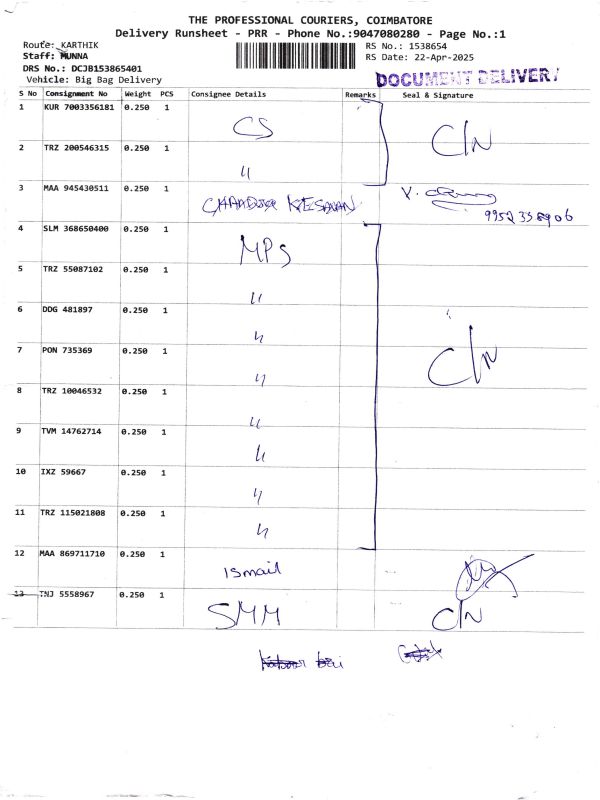 THE PROFESSIONAL COURIERS, COIMBATORE
Delivery Runsheet - PRR - Phone No.:9047080280 - Page No.:1
Route: KARTHIK
RS No.: 1538654
Staff: MUNNA
RS Date: 22-Apr-2025
DRS No.: DCJB153865401
Vehicle: Big Bag Delivery
DOCUMENT DELIVERY
S No Consignment No Weight PCS Consignee Details Remarks Seal & Signature
1 KUR 7003356181 0.250 1 CS C/N
2 TRZ 200546315 0.250 1 〃
3 MAA 945430511 0.250 1 CHANDRA KESAVAN
4 SLM 368650400 0.250 1 MPS
5 TRZ 55087102 0.250 1 〃
6 DDG 481897 0.250 1 〃
7 PON 735369 0.250 1 〃 C/N
8 TRZ 10046532 0.250 1 〃
9 TVM 14762714 0.250 1 〃
10 IXZ 59667 0.250 1 〃
11 TRZ 115021808 0.250 1 〃
12 MAA 869711710 0.250 1 Ismail
13 TNJ 5558967 0.250 1 SMM C/N